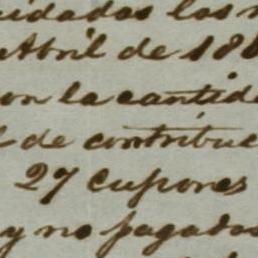 cuidadas las
Abril de 18
con la cantid
de contribuc
27 Cupones
y no pagados